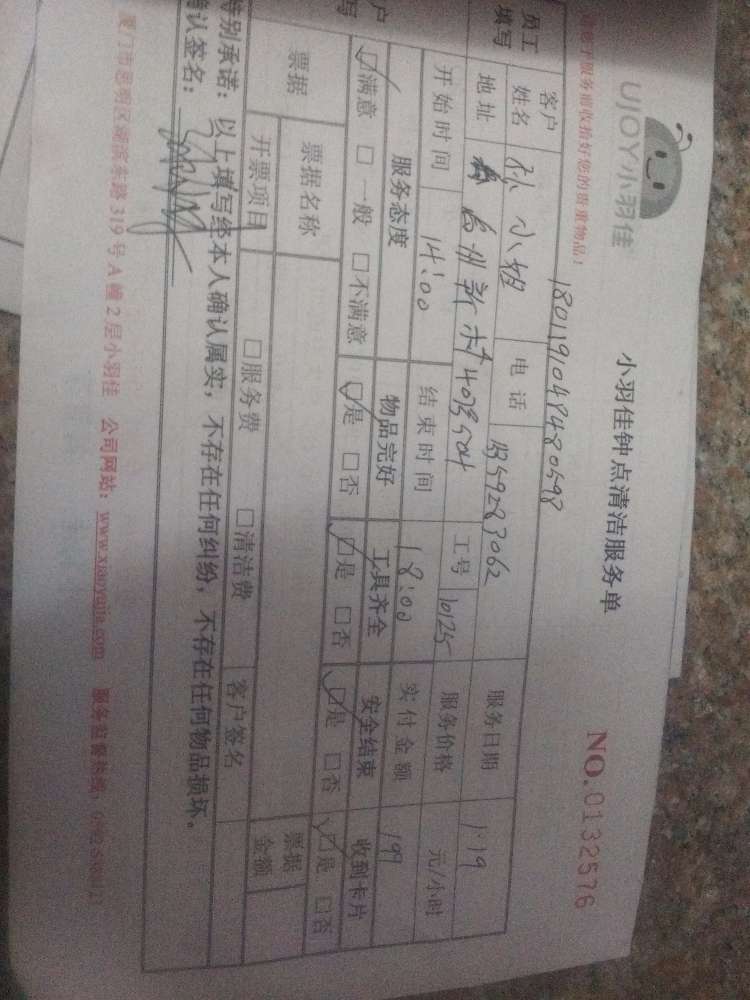 UJOY小羽佳
小羽佳钟点清洁服务单
NO.0132576
服务前收拾好您的贵重物品！
1801191048480598
员工填写
客户姓名 孙小姐 电话 服务日期 1.19
地址 工号 10125 服务价格 元/小时
开始时间 14:00 结束时间 18:00 实付金额 199
服务态度 物品完好 工具齐全 安全结束 收到卡片
☑满意 □一般 □不满意 ☑是 □否 ☑是 □否 ☑是 □否 ☑是 □否
票据 票据名称 客户签名 票据金额
开票项目 □服务费 □清洁费
特别承诺：以上填写经本人确认属实，不存在任何纠纷，不存在任何物品损坏。
确认签名：
厦门市思明区湖滨东路319号A幢2层小羽佳 公司网站：www.xiaoyujia.com